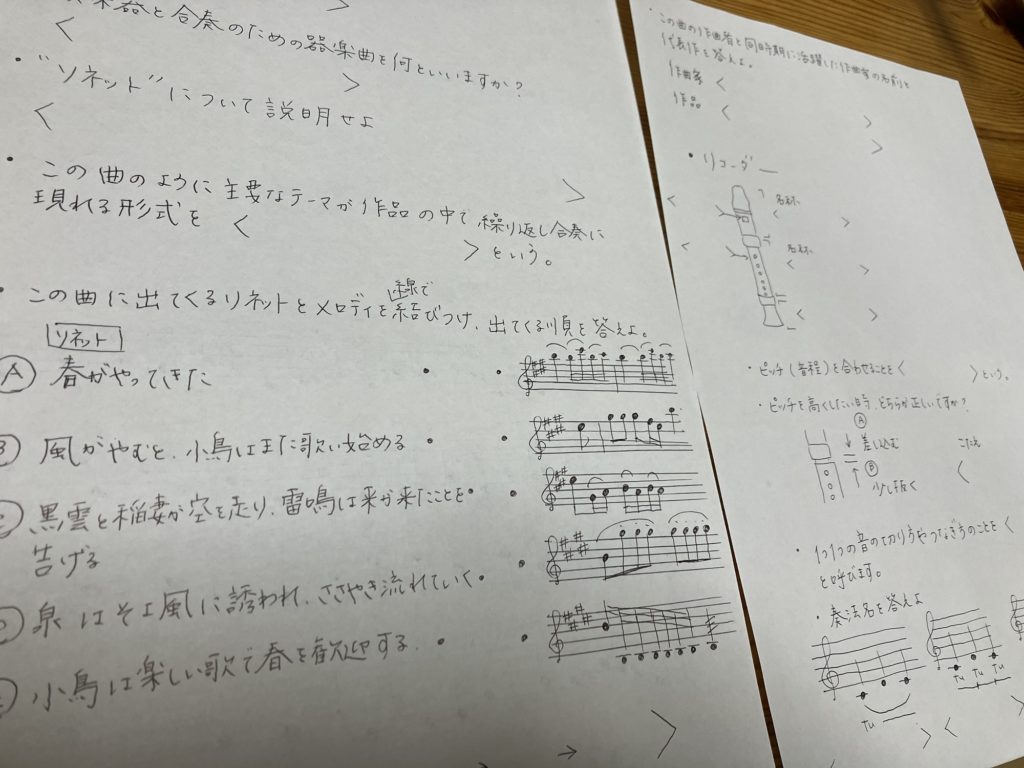 器と合奏のための器楽曲を何といいますか?
<
>
・"ソネット"について説明せよ
<
>
・この曲のように主要なテーマが作品の中で繰り返し合奏に
現れる形式を <
>という。
・この曲に出てくるソネットとメロディを線で結びつけ、出てくる順を答えよ。
ソネット
Ⓐ 春がやってきた
Ⓑ 風がやむと、小鳥はまた歌い始める
黒雲と稲妻が空を走り、雷鳴は
が来たことを
告げる
Ⓓ 泉はそよ風に誘われ、ささやき流れていく
小鳥は楽しい歌で春を歓迎する。
→
>
・この曲の作曲者と同時期に活躍した作曲家の名前と
代表作を答えよ。
作曲家 < >
作品 < >
・リコーダー
< 名称
< >
< 名称
< >
< >
・ピッチ(音程)を合わせることを< >という。
・ピッチを高くしたい時、どちらが正しいですか?
Ⓐ
差し込む
Ⓑ
少し抜く
こたえ
<
・1つ1つの音の切り方やつなぎ方のことを<
と呼びます。
・奏法名を答えよ
tu
tu tu tu
> <